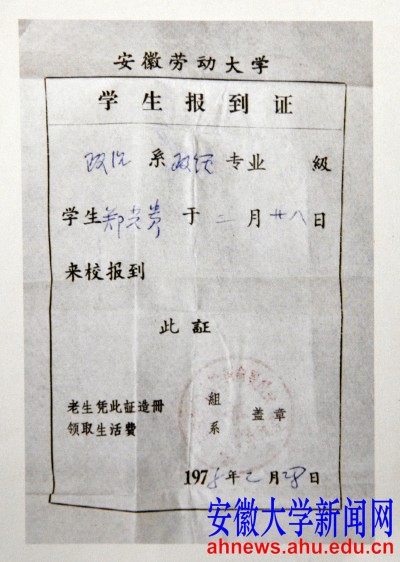 安徽劳动大学
学生报到证
政治系政经专业 級
学生郑 贵于二月廿八日
来校报到
此証
老生凭此証造册
領取生活費
組
系
盖章
1978年2月28日
安徽大学新闻网
ahnews.ahu.edu.cn